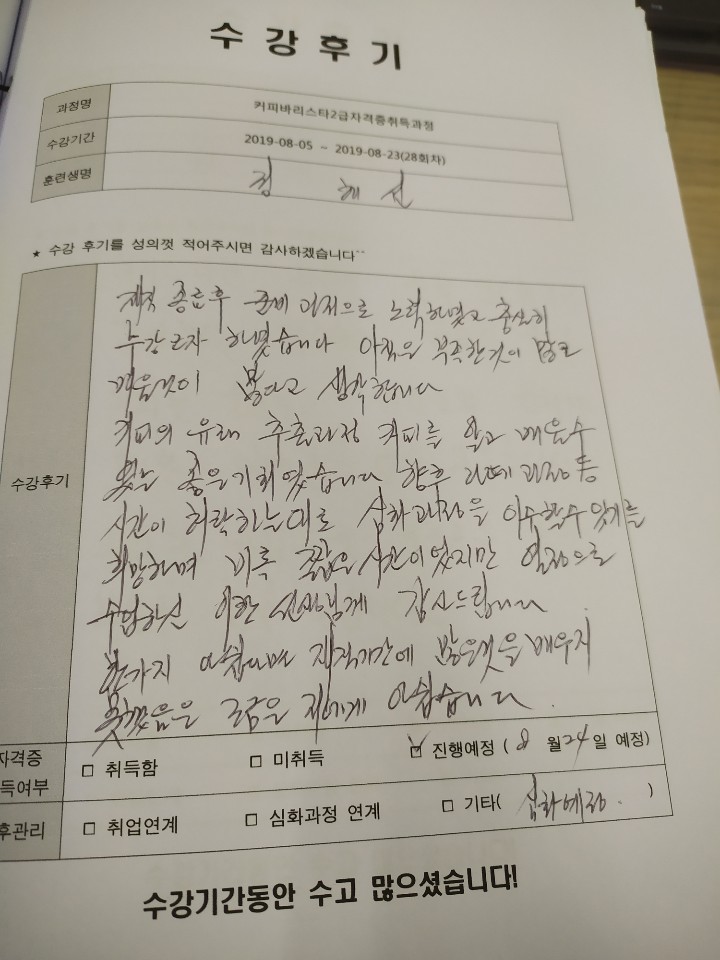 수강후기
과정명 커피바리스타2급자격증취득과정
수강기간 2019-08-05 ~ 2019-08-23(28회차)
훈련생명 정 해 선
★ 수강 후기를 성의껏 적어주시면 감사하겠습니다^^
수강후기
재직 종료후 준비 과정으로 노력하였고 충실히
수강 하였습니다 아직은 부족한것이 많고
배울것이 많다고 생각합니다
커피의 유래 추출과정 커피를 알고 배울수
있는 좋은기회였습니다 향후 라떼과정등
시간이 허락하는대로 심화과정을 이수할수있기를
희망하며 비록 짧은시간이였지만 열정으로
수업하신 선생님께 감사드립니다
한가지 아쉽다면 재직기간에 많은것을 배우지
못했음은 조금은 저에게 아쉽습니다.
자격증 득여부 □ 취득함 □ 미취득 ☑ 진행예정 ( 8 월24일 예정)
후관리 □ 취업연계 □ 심화과정 연계 □ 기타( 심화예정. )
수강기간동안 수고 많으셨습니다!